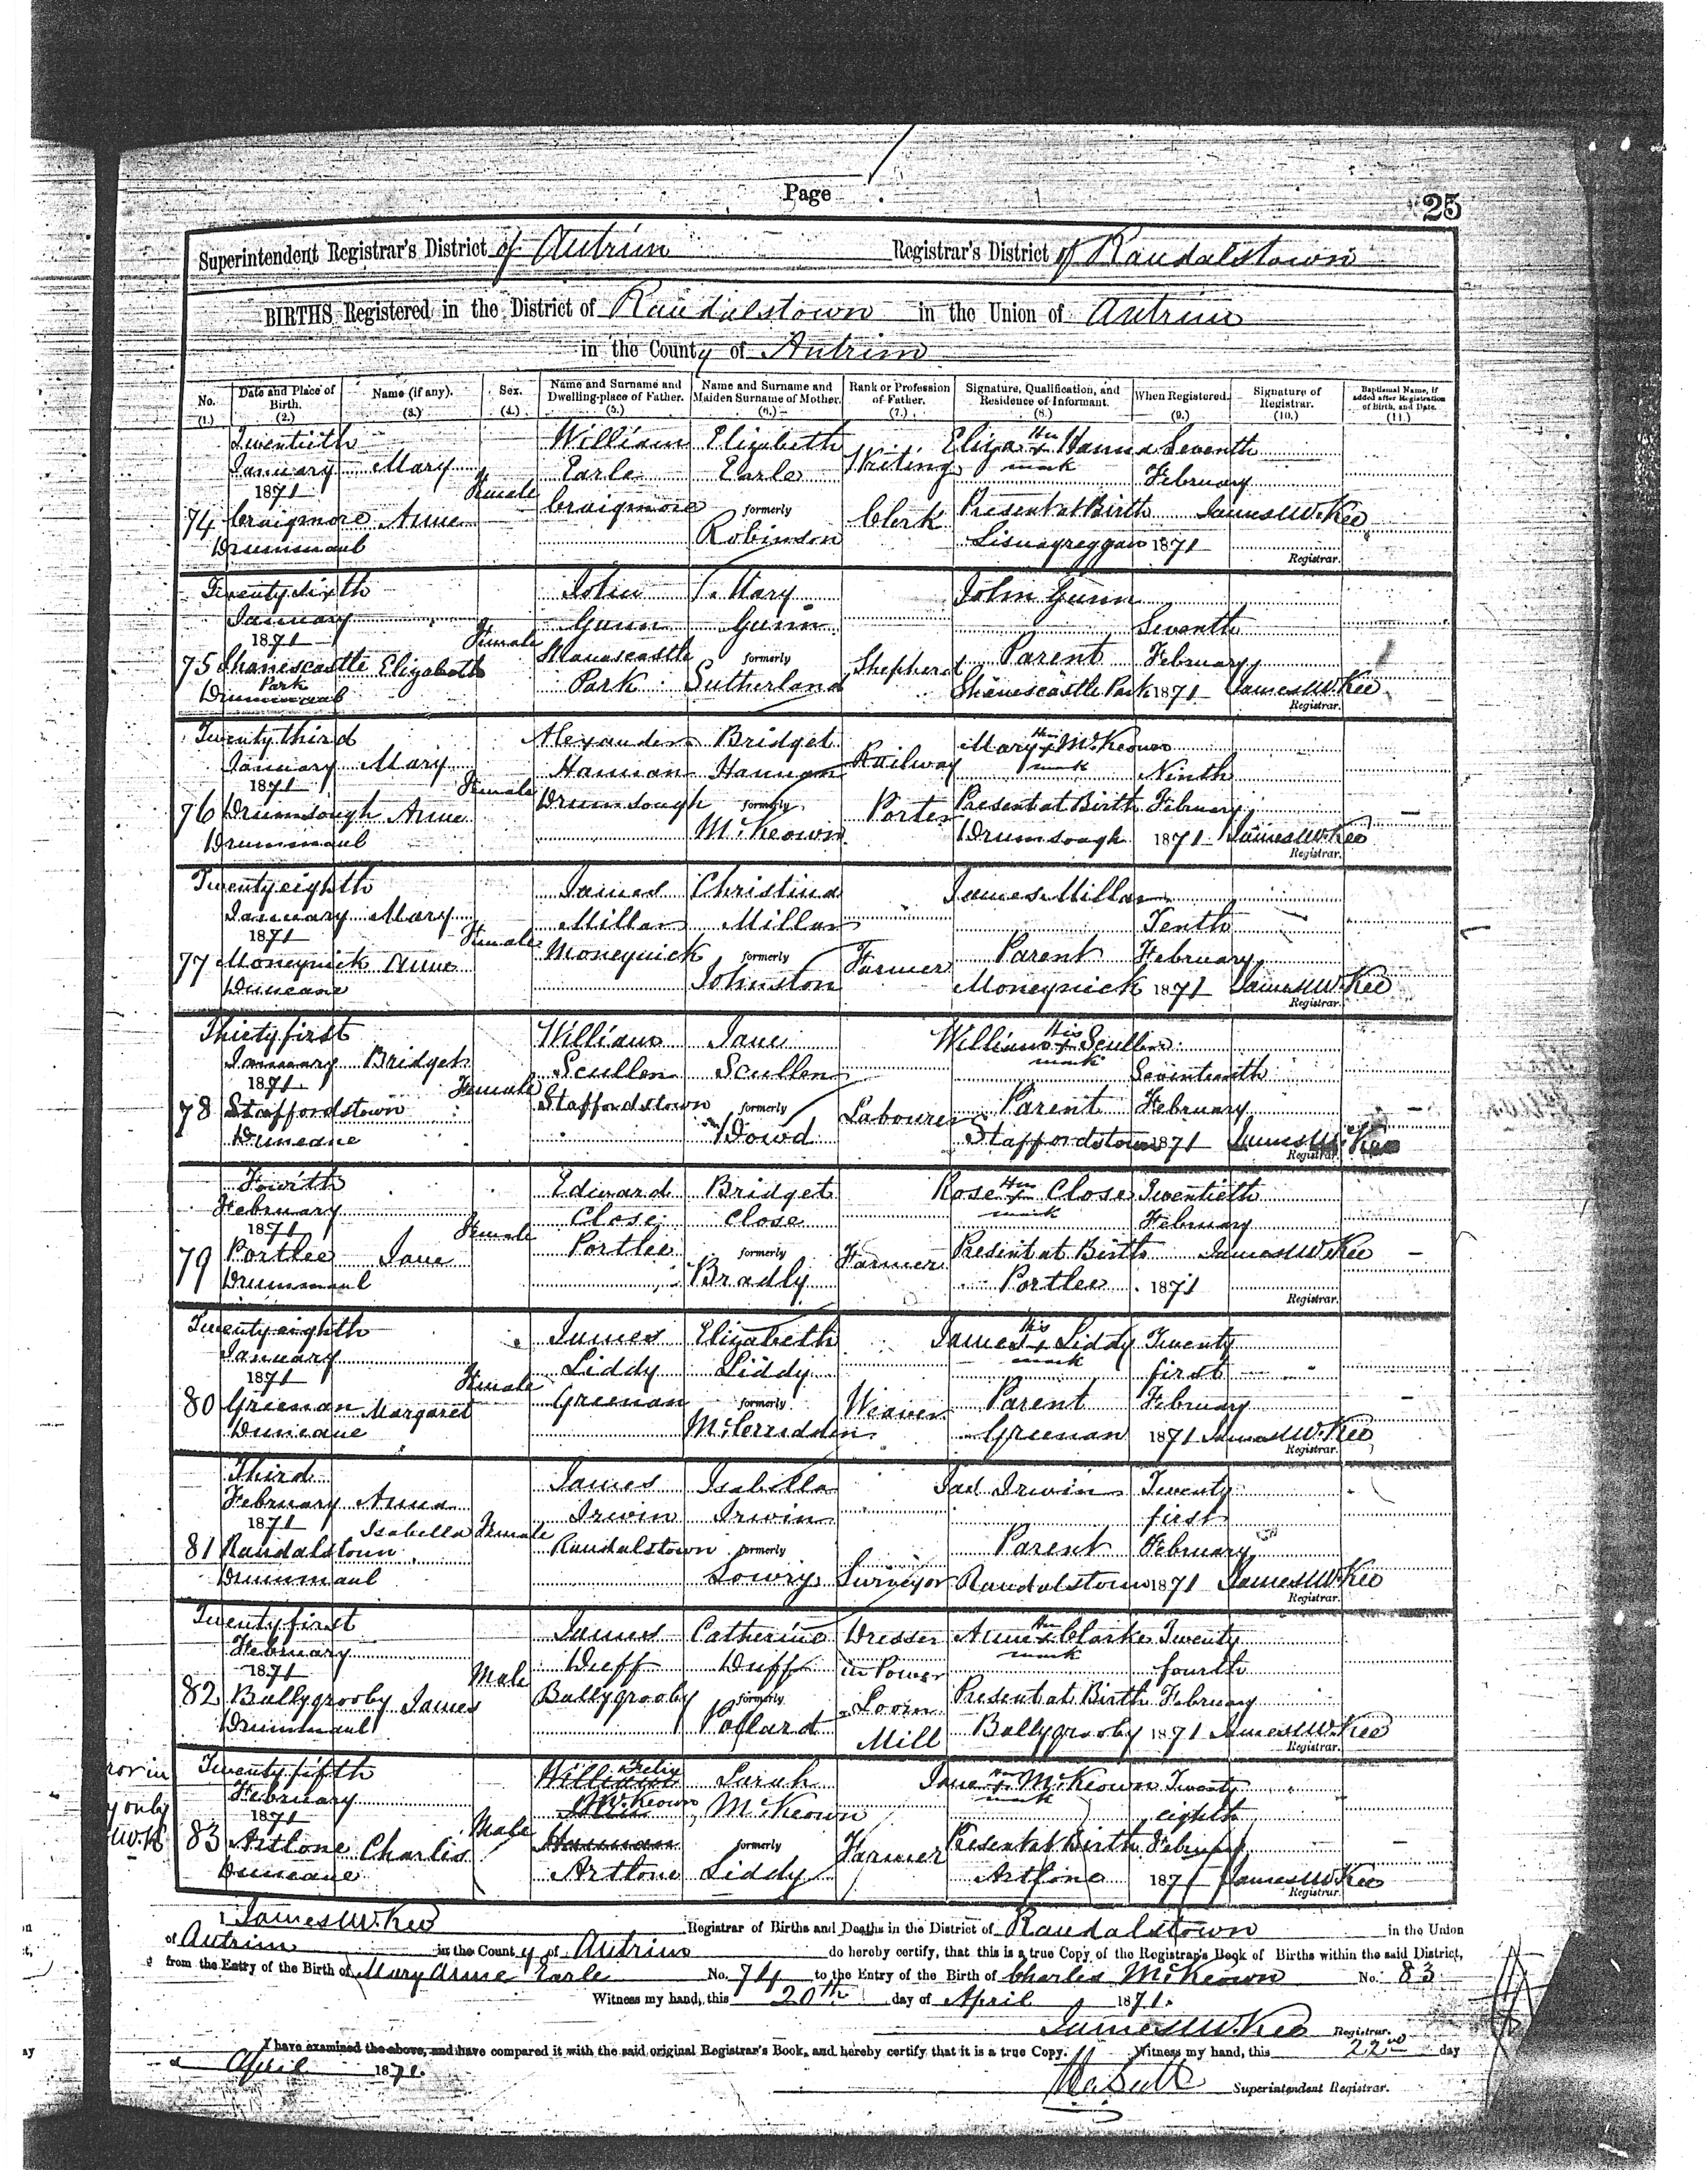 Page
25
Superintendent Registrar's District of Antrim Registrar's District of Randalstown
BIRTHS Registered in the District of Randalstown in the Union of Antrim
in the County of Antrim
No. (1.) Date and Place of Birth. (2.) Name (if any). (3.) Sex. (4.) Name and Surname and Dwelling-place of Father. (5.) Name and Surname and Maiden Surname of Mother. (6.) Rank or Profession of Father. (7.) Signature, Qualification, and Residence of Informant. (8.) When Registered. (9.) Signature of Registrar. (10.) Baptismal Name, if added after Registration of Birth, and Date. (11.)
Twentieth William Elizabeth Eliza Her Hanna Seventh
January Mary Earle Earle Writing x mark February
1871 Female Craigmore formerly Present at Birth
74 Craigmore Anne Robinson Clerk James W. Kee
Drummaul Lisnagreggan 1871 Registrar.
Twenty sixth John Mary John Gunn
January Gunn Gunn Seventh
1871 Female Shanescastle formerly Parent February
75 Shanescastle Elizabeth Park Sutherland Shepherd
Park Drummaul Shanescastle Park 1871 James W. Kee
Registrar.
Twenty third Alexander Bridget Mary Her x mark McKeown
January Mary Hannan Hannan Railway Ninth
1871 Female Drumsough formerly Present at Birth February
76 Drumsough Anne McKeown Porter
Drummaul Drumsough 1871 James W. Kee
Registrar.
Twenty eighth James Christina James Millar
January Mary Millar Millar Tenth
1871 Female Moneynick formerly Parent February
77 Moneynick Anne Johnston Farmer
Duneane Moneynick 1871 James W. Kee
Registrar.
Thirty first William Jane William His x mark Scullen
January Bridget Scullen Scullen Seventeenth
1871 Female Staffordstown formerly Parent February
78 Staffordstown Dowd Labourer
Duneane Staffordstown 1871 James W. Kee
Registrar.
Fourth Edward Bridget Rose Her x mark Close Twentieth
February Close Close February
1871 Female Portlee formerly Present at Birth
79 Portlee Jane Bradly Farmer James W. Kee
Drummaul Portlee 1871
Registrar.
Twenty eighth James Elizabeth James His x mark Liddy Twenty
January Liddy Liddy first
1871 Female Greenan formerly Parent February
80 Greenan Margaret Weaver
Duneane Greenan 1871 James W. Kee
Registrar.
Third James Isabella Jas Irwin Twenty
February Anna Irwin Irwin first
1871 Isabella Female Randalstown formerly Parent February
81 Randalstown Lowry Surveyor
Drummaul Randalstown 1871 James W. Kee
Registrar.
Twenty first James Catherine Dresser Anne Her x mark Clarke Twenty
February Duff Duff in Power fourth
1871 Male Ballygrooby formerly Loom Present at Birth February
82 Ballygrooby James Pollard Mill
Drummaul Ballygrooby 1871 James W. Kee
Registrar.
Twenty fifth William Felix Sarah Jane Her x mark McKeown Twenty
February McKeown McKeown eighth
1871 Male Hannan formerly Present at Birth February
83 Artlone Charles Artlone Liddy Farmer
Duneane Artlone 1871 James W. Kee
Registrar.
I James W. Kee Registrar of Births and Deaths in the District of Randalstown in the Union
of Antrim in the County of Antrim do hereby certify, that this is a true Copy of the Registrar's Book of Births within the said District,
from the Entry of the Birth of Mary Anne Earle No. 74 to the Entry of the Birth of Charles McKeown No. 83
Witness my hand, this 20th day of April 1871.
James W. Kee Registrar.
I have examined the above, and have compared it with the said original Registrar's Book, and hereby certify that it is a true Copy. Witness my hand, this 22nd day
April 1871.
Superintendent Registrar.